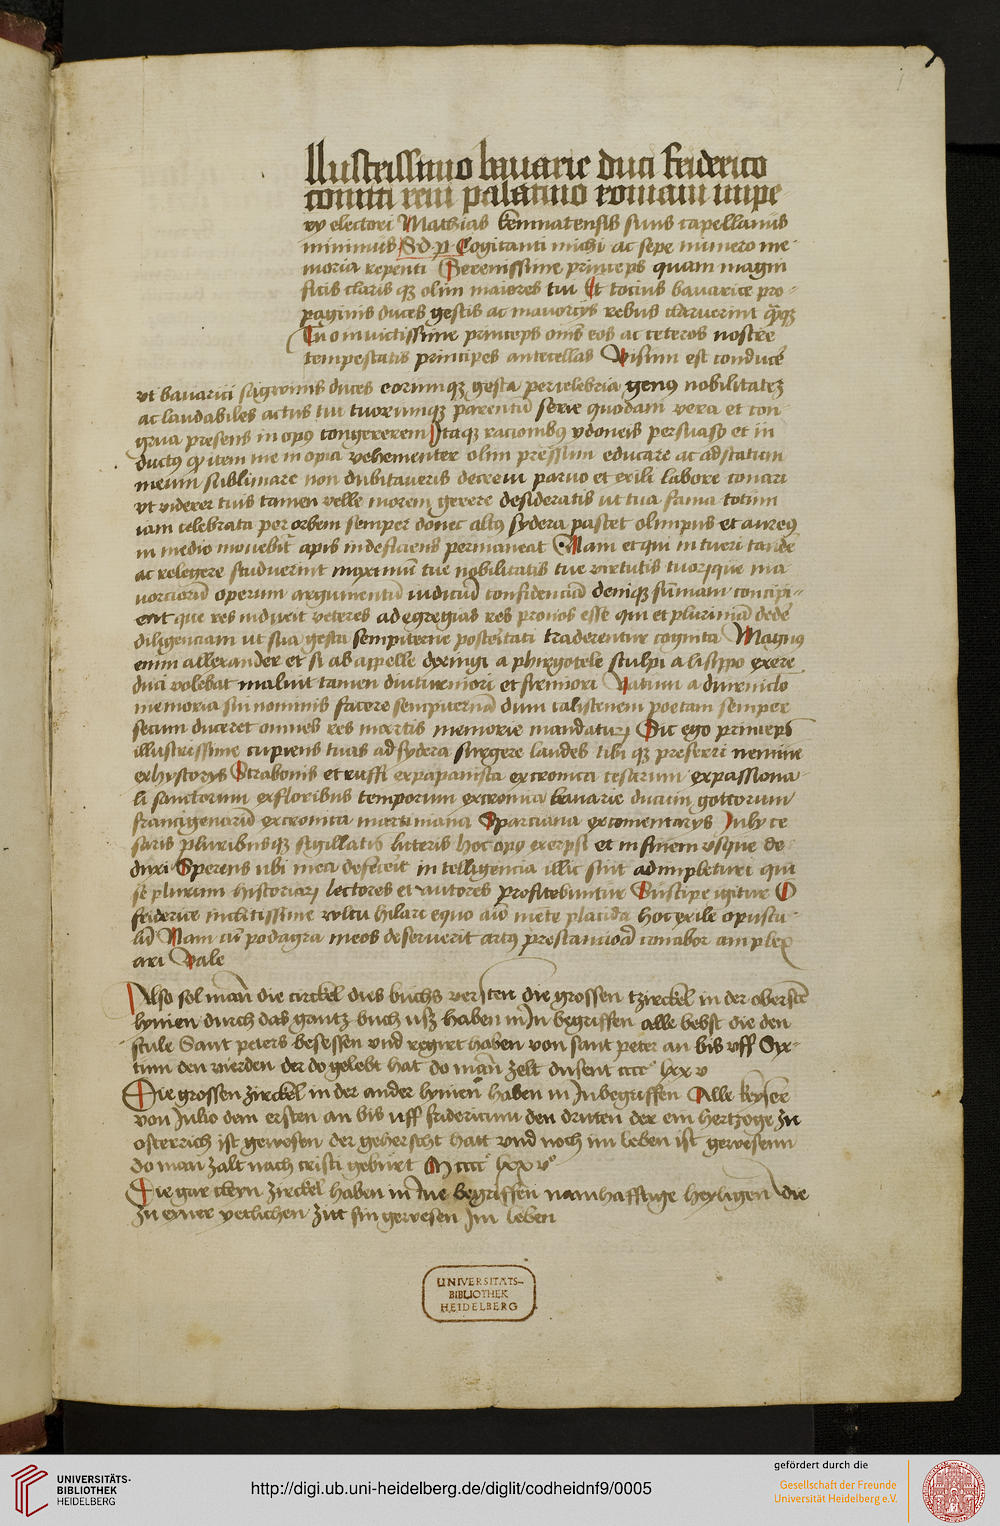 1
llustrissimo bauarie duci friderico
comiti reni palatino romani impe-
ry electori Mathias kemnatensis suus capellanus
minimus S. d. p. Cogitanti michi ac sepe numero me-
moria repenti Serenissime princeps quam magni
ficis claris qz olim maiores tui Et totius bauarice pro-
paginis duces gestis ac mauortys rebus claruerint
Tu o inuictissime princeps omēs eos ac ceteros nostre
tempestatis principes antecellas Visum est conducē
vt bauarici sagwinis duces eorumqz gesta percelebria genus nobilitatez
ac laudabiles actus tui tuorumqz parentū serie quodam vera et con-
grua presens in opus congererem Itaqz racionibus ydoneis persuasus et in
ductus item me in opia vehementer olim pressum educare ac ad statum
meum sublimare non dubitaueris decreui paruo et exili labore conari
vt viderer tuis tamen velle morem gerere desideratis vt tua fama totum
iam celebrata per orbem semper donec altus sydera pascet olimpus et aureus
in medio mouebit apis indeficiens permaneat Nam et qui intueri tandē
ac relegere studuerint maximū tue nobilitatis tue virtutis tuorqūe ma
uorciorū operum argumentū iudiciū confidenciā deniqz sūmam concipi-
ent que res induxit veteres ad egregias res pronos esse qui et plurimā dedē
diligenciam ut sua gesta sempiterne posteritati traderentur cognita Magnus
enim allexander et si ab appelle depingi a phirgotele sculpi a lisippo exere
duci volebat maluit tamen diuturniori et firmiori vatum adminiclo
memoria sui nominis facere sempiternā dum calistenem poetam semper
secum duceret omnes res martis memorie mandaturū Sic ego princeps
illustrissime cupiens tuas ad sydera surgere laudes tibi qz preferri nemine
ex hystorys Strabonis et ruffi ex papanista ex cronica cesarum ex passiona-
li sanctorum ex floribus temporum ex cronica bauarie ducum gottorum
francigenarū ex cronica martiniana Sparciana ex comentarys July ce
saris pluribusqz sigillatis litteris hoc opus exerpsi et in finem vsque de-
duxi Sperens ubi mea defecerit intelligencia illic sint adimpleturi qui
se plurium historiarū lectores et autores profitebuntur Suscipe igitur O
friderice inclitissime vultu hilari equo aīo mete placida hoc exile opuscu-
lū Nam cū podagra meos deseruerit artus prestanciorā conabor amplex
ari Vale
Also sol man die circkel dis buchs versten die grossen tzirckel in der obersten
lynien durch das gantz buch usz haben in Jn begriffen alle bebst die den
stule Sant peters besessen vnd regirt haben von sant peter an bis vff Syx-
tum den vierden der do gelebt hat do man zelt dusent cccc° lxx v
Die grossen zirckel in der ander lynien haben in Jnbegriffen Alle keyser
von Julio dem ersten an bis uff fridericum den dritten der ein hertzoge zu
osterrich ist gewesen der geherscht hatt vnd noch im leben ist gewesenn
do man zalt nach cristi geburt M cccc° lxx v°
Die gar cleyn zirckel haben in Jne begriffen namhafftige heyligen die
zu eyner yetlichen zitt sin gewesen Jm leben
UNIVERSITÄTS-
BIBLIOTHEK
HEIDELBERG
UNIVERSITÄTS-
BIBLIOTHEK
HEIDELBERG
http://digi.ub.uni-heidelberg.de/diglit/codheidnf9/0005
gefördert durch die
Gesellschaft der Freunde
Universität Heidelberg e.V.